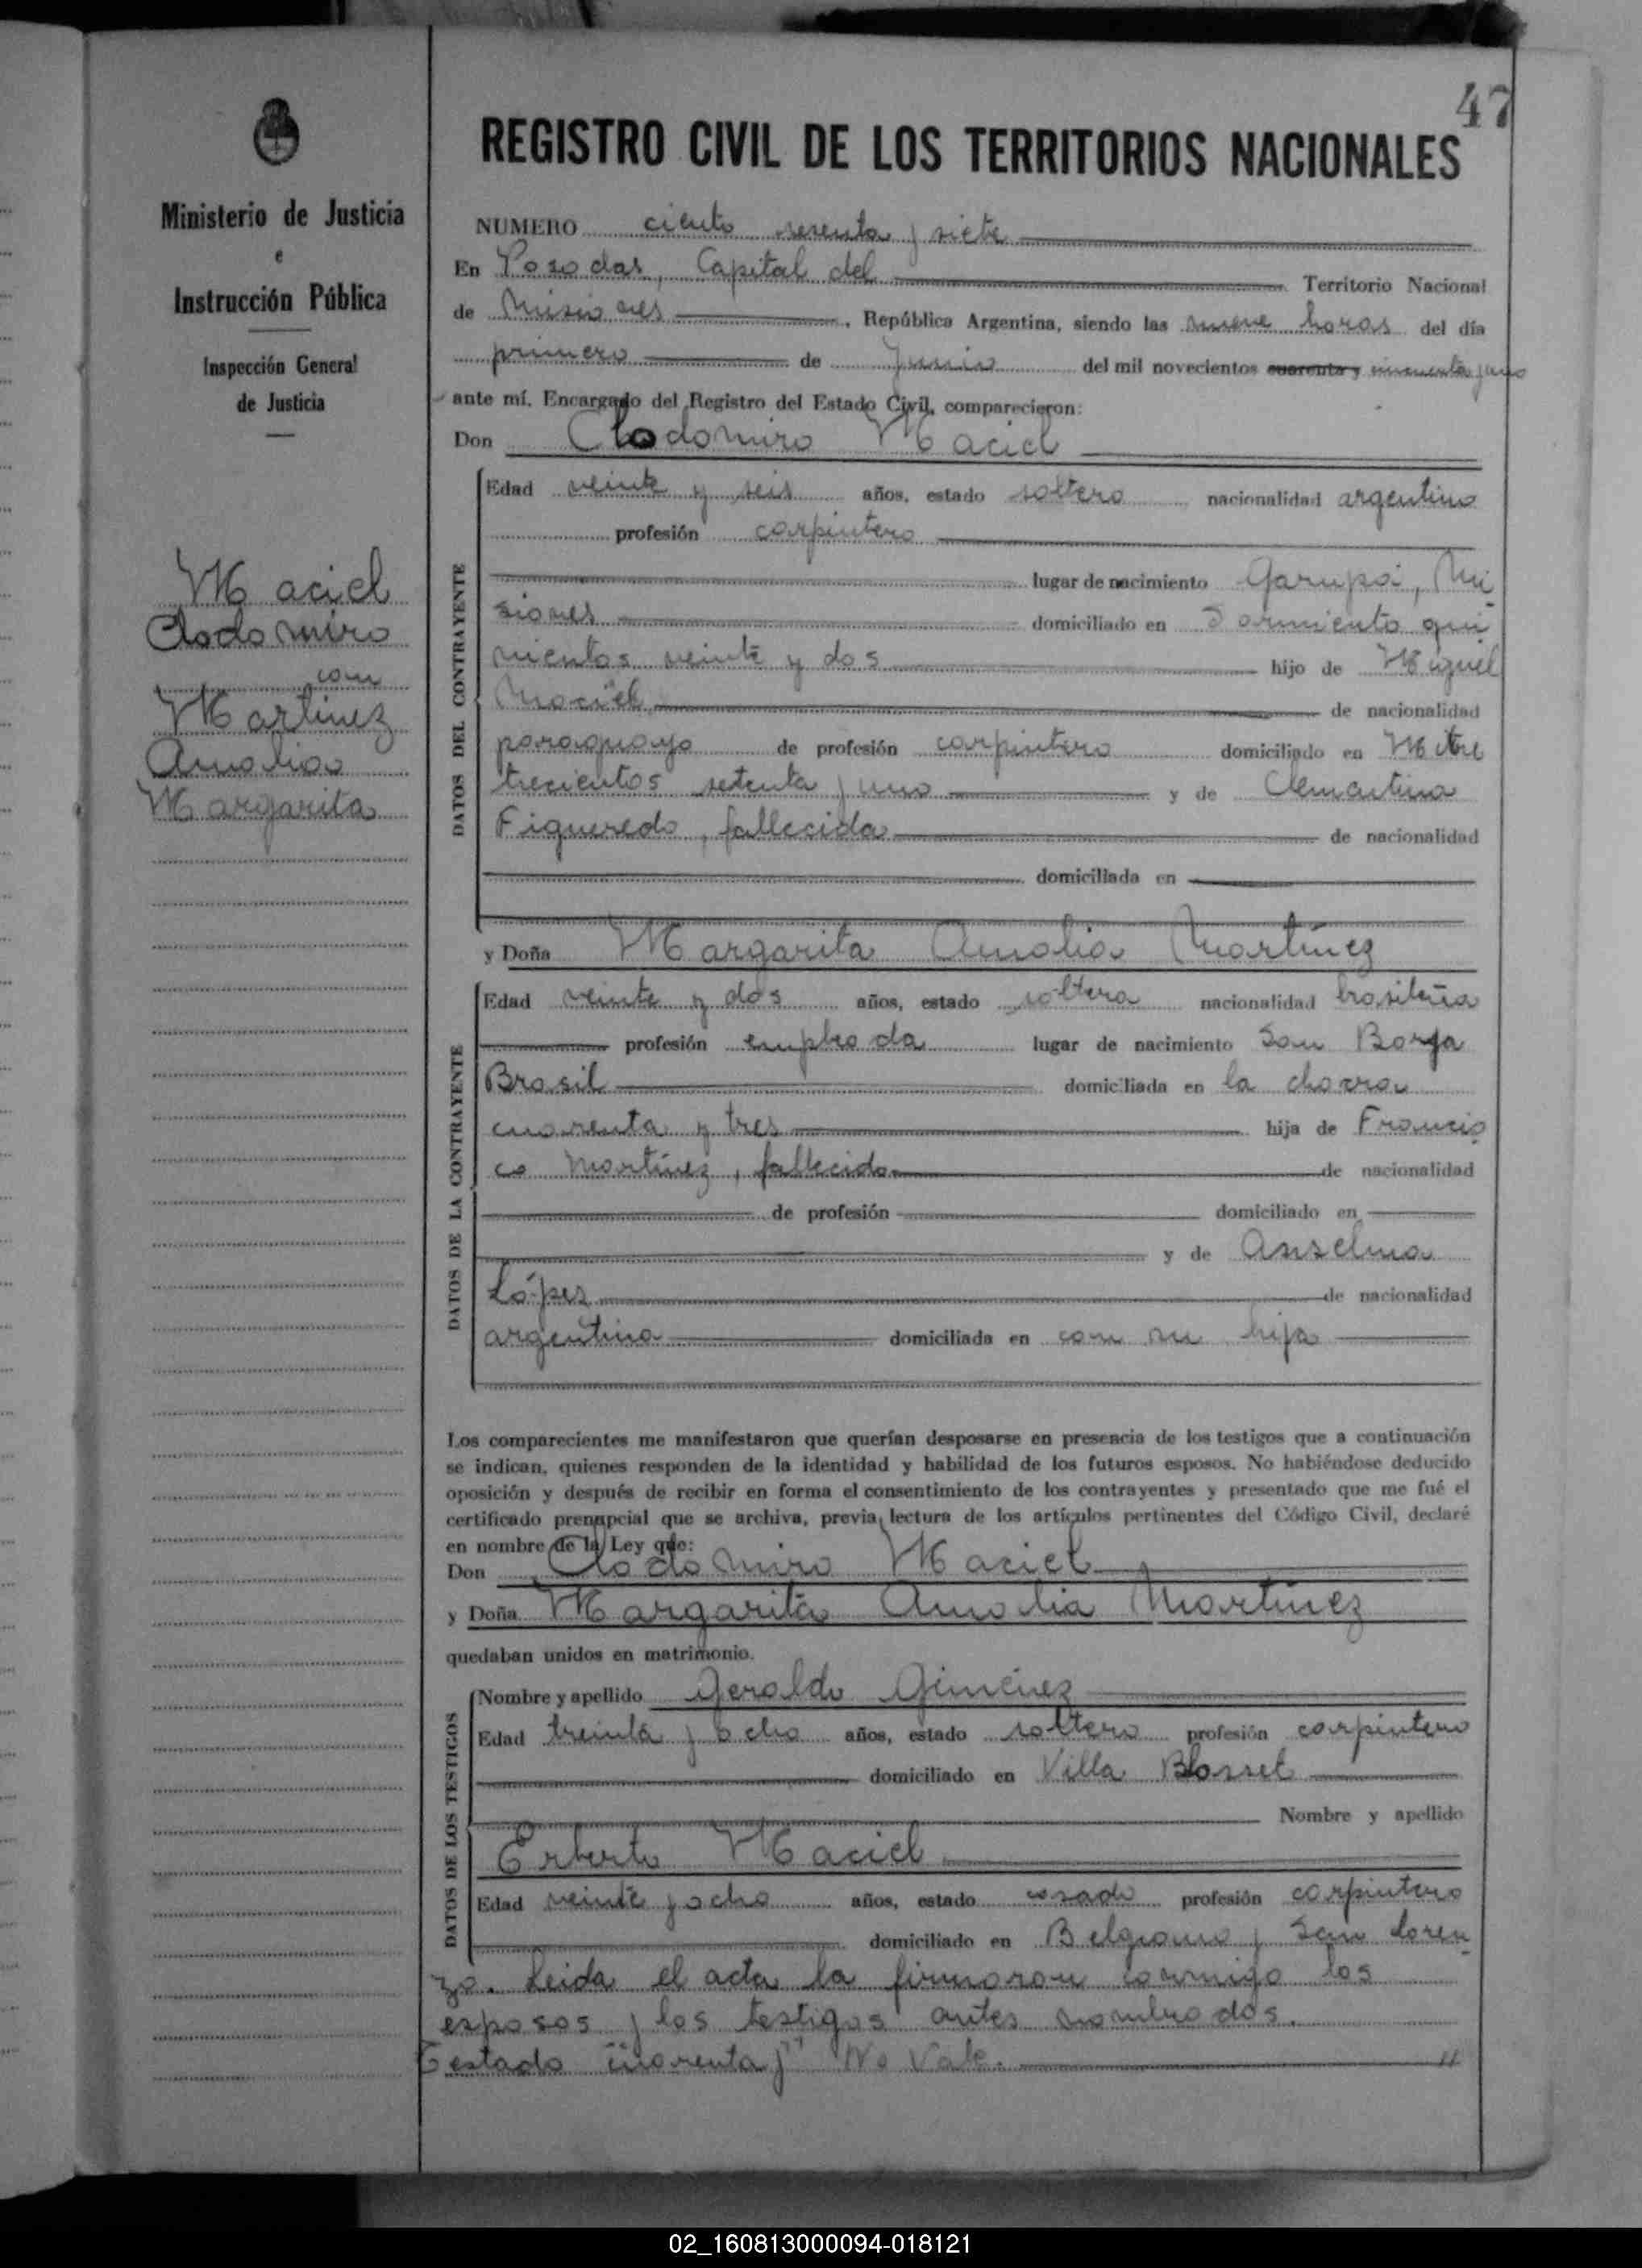 47
REGISTRO CIVIL DE LOS TERRITORIOS NACIONALES
Ministerio de Justicia
e
Instrucción Pública
Inspección General
de Justicia
Maciel
Clodomiro
con
Martinez
Amalia
Margarita
NUMERO ciento sesenta y siete
En Posadas, Capital del Territorio Nacional
de Misiones, República Argentina, siendo las nueve horas del día
primero de Junio del mil novecientos cuarenta y cincuenta y uno
ante mí, Encargado del Registro del Estado Civil, comparecieron:
Don Clodomiro Maciel
DATOS DEL CONTRAYENTE
Edad veinte y seis años, estado soltero nacionalidad argentino
profesión carpintero
lugar de nacimiento Garupá, Mi
siones domiciliado en Sarmiento qui
nientos veinte y dos hijo de Miguel
Maciel de nacionalidad
paraguayo de profesión carpintero domiciliado en Mitre
trecientos setenta y uno y de Clementina
Figueredo, fallecida de nacionalidad
domiciliada en
y Doña Margarita Amalia Martínez
DATOS DE LA CONTRAYENTE
Edad veinte y dos años, estado soltera nacionalidad brasileña
profesión empleada lugar de nacimiento San Borja
Brasil domiciliada en la chacra
cuarenta y tres hija de Francis
co Martínez, fallecido de nacionalidad
de profesión domiciliado en
y de Anselma
López de nacionalidad
argentina domiciliada en con su hija
Los comparecientes me manifestaron que querían desposarse en presencia de los testigos que a continuación
se indican, quienes responden de la identidad y habilidad de los futuros esposos. No habiéndose deducido
oposición y después de recibir en forma el consentimiento de los contrayentes y presentado que me fué el
certificado prenupcial que se archiva, previa lectura de los artículos pertinentes del Código Civil, declaré
en nombre de la Ley que:
Don Clodomiro Maciel
y Doña Margarita Amalia Martínez
quedaban unidos en matrimonio.
DATOS DE LOS TESTIGOS
Nombre y apellido Geraldo Giménez
Edad treinta y ocho años, estado soltero profesión carpintero
domiciliado en Villa Blosset
Nombre y apellido
Erberto Maciel
Edad veinte y ocho años, estado casado profesión carpintero
domiciliado en Belgrano y San Loren
zo. Leida el acta la firmaron conmigo los
esposos y los testigos antes nombrados.
Testado "cuarenta y" No Vale.
02_160813000094-018121